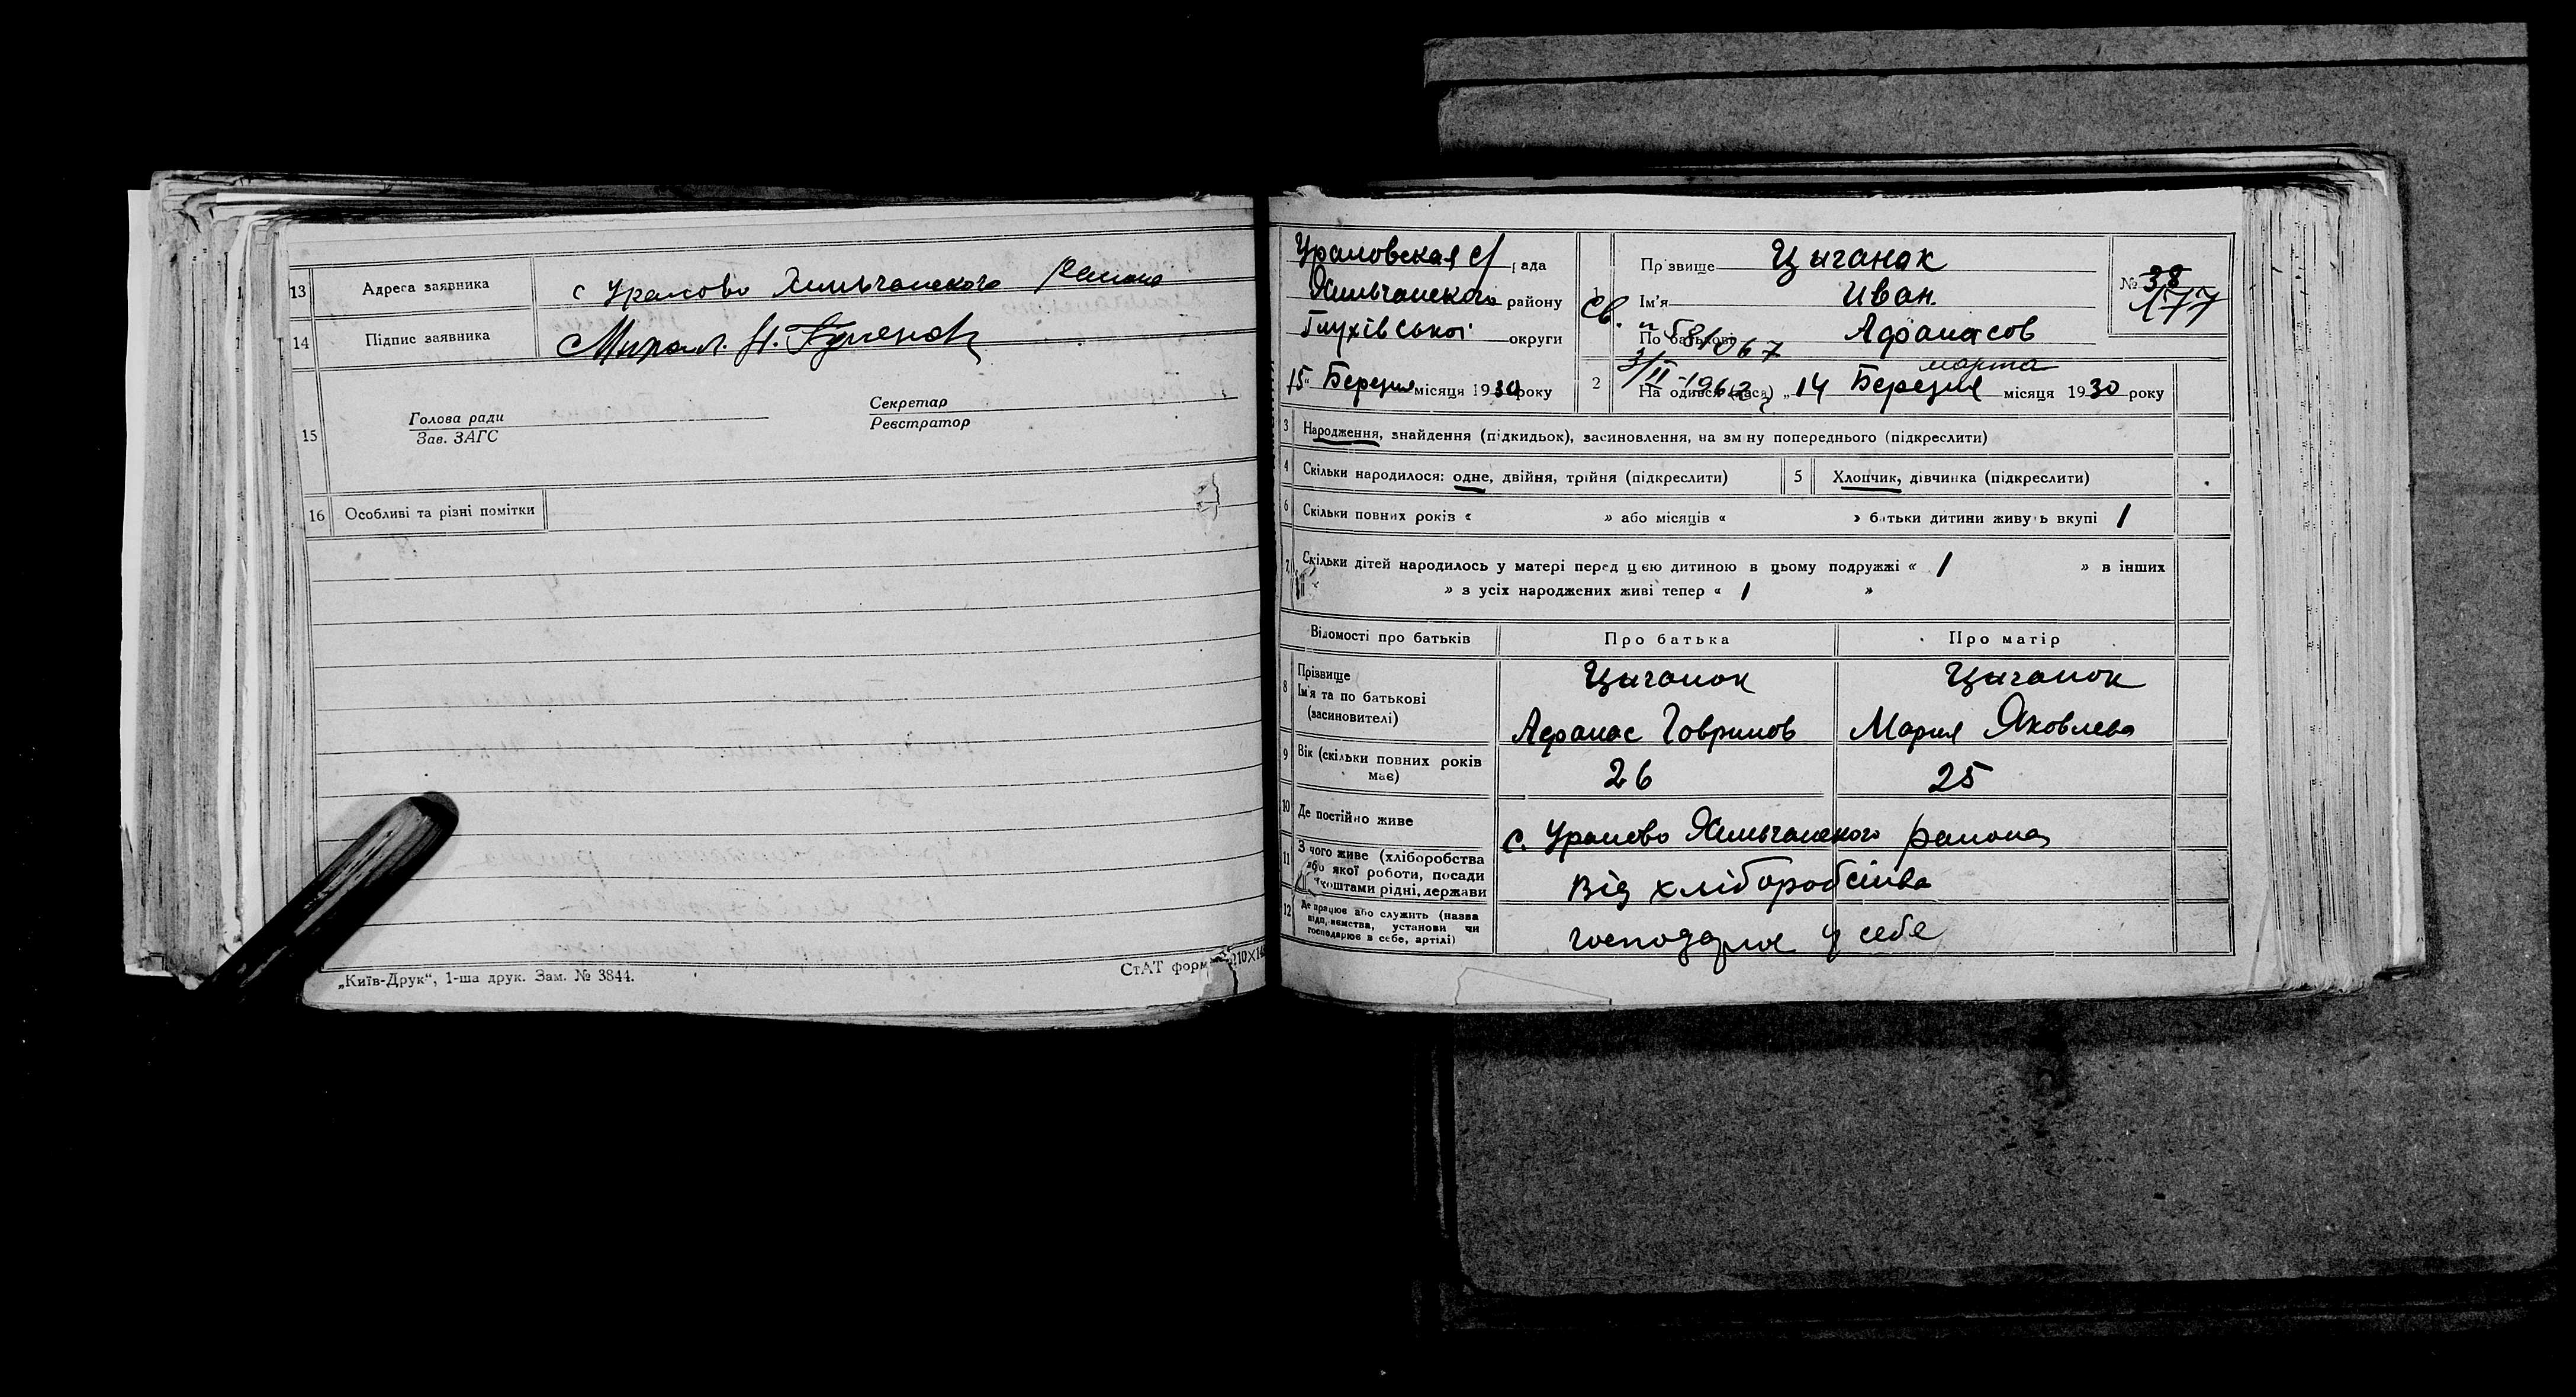 13 Адреса заявника с Уралово Хильчанского района
14 Підпис заявника
15 Голова ради
Зав. ЗАГС
Секретар
Реєстратор
16 Особливі та різні помітки
„Київ-Друк“, 1-ша друк. Зам. № 3844.
СтАТ форм
Ураловская с/ рада
Хильчанского району
Глухівської округи
15 Березня місяця 1930 року
1 Прізвище Цыганок
Ім'я Иван.
По батькові Афанасов
Св. 581067
3/II-1962
№ 38
177
марта
2 На одився (лась) „14 Березня місяця 1930 року
3 Народження, знайдення (підкидьок), засиновлення, на зміну попереднього (підкреслити)
4 Скільки народилося: одне, двійня, трійня (підкреслити)
5 Хлопчик, дівчинка (підкреслити)
6 Скільки повних років « » або місяців « » батьки дитини живуть вкупі 1
7 Скільки дітей народилось у матері перед цією дитиною в цьому подружжі « 1 » в інших
» з усіх народжених живі тепер « 1 »
Відомості про батьків Про батька Про матір
8 Прізвище Ім'я та по батькові (засиновителі)
Цыганок Цыганок
Афанас Говрилов Мария Яковлева
9 Вік (скільки повних років має) 26 25
10 Де постійно живе с. Уралово Хильчанского района
11 З чого живе (хліборобства або якої роботи, посади коштами рідні, держави
Від хліборобства
12 Де працює або служить (назва підп, ємства, установи чи господарює в себе, артілі)
господарює у себе